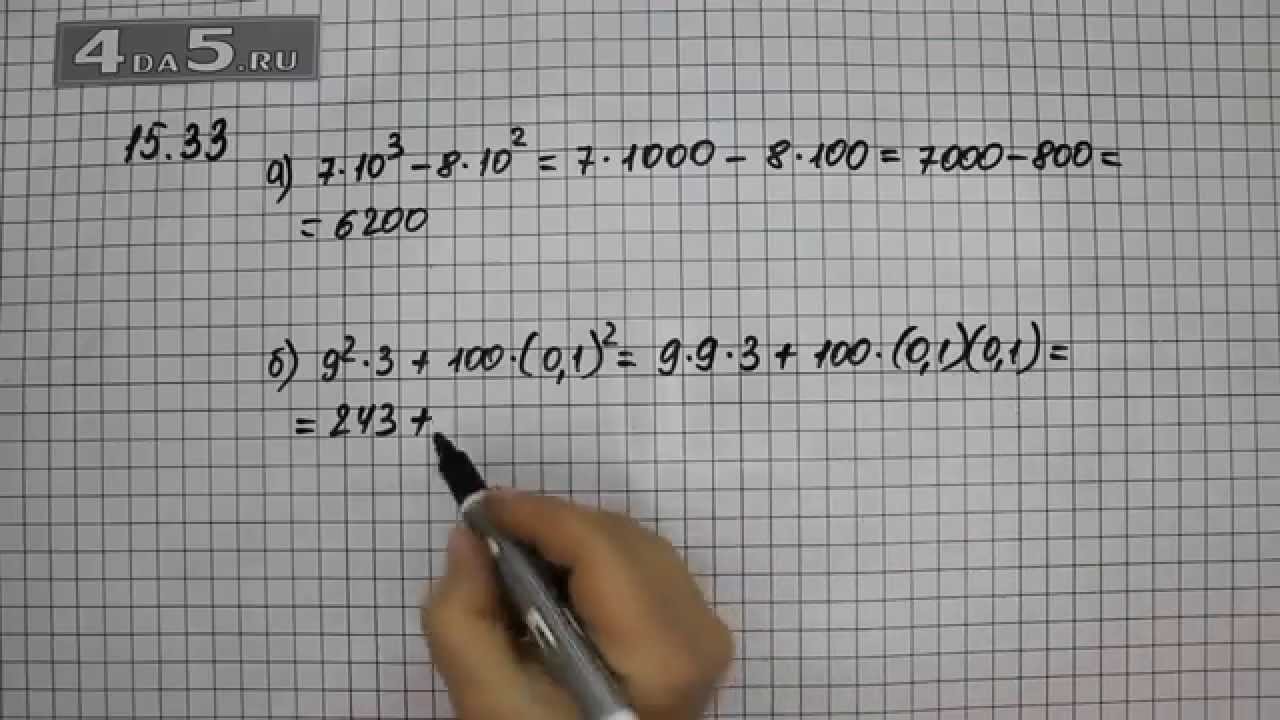 4DA5.RU
15.33
а) 7·10³ − 8·10² = 7·1000 − 8·100 = 7000 − 800 =
= 6200
б) 9²·3 + 100·(0,1)² = 9·9·3 + 100·(0,1)(0,1) =
= 243 +